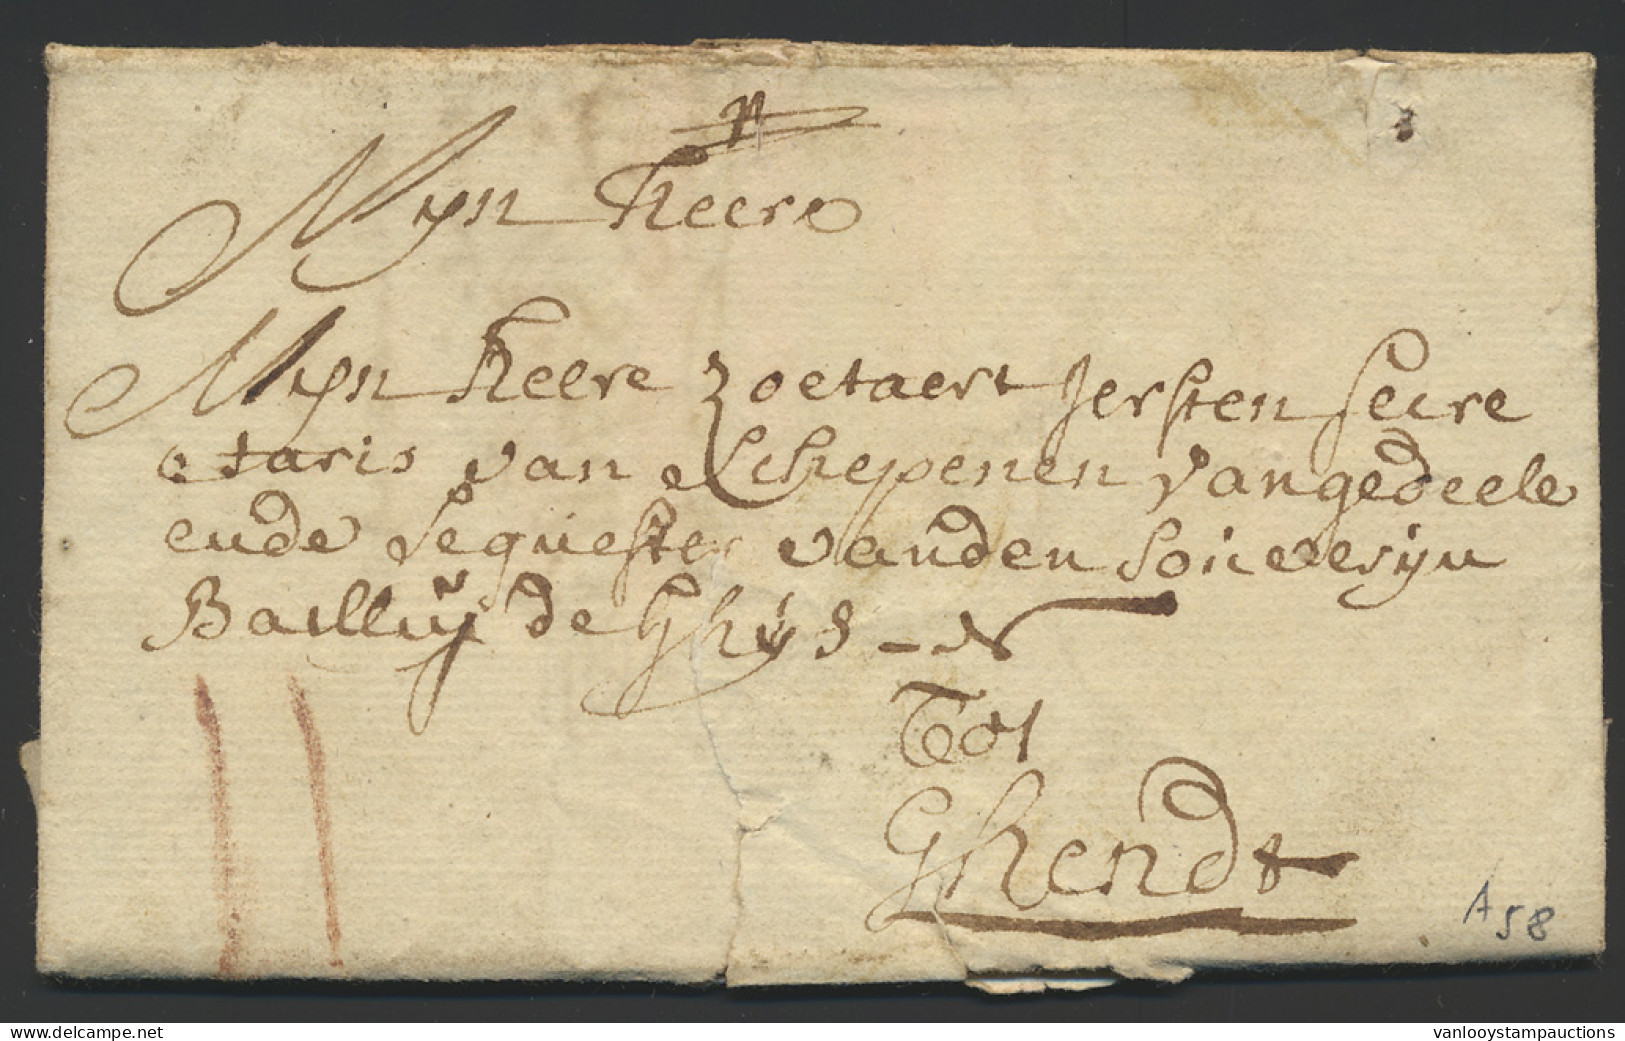 Mijn Heere
Mijn Heere Zoetaert Jersten Secre
taris van Schepenen van gedeele
ende Sequester vanden Souverijn
Bailluÿ de Ghÿs
Tot
Ghendt
II
A58
vanlooystampauctions